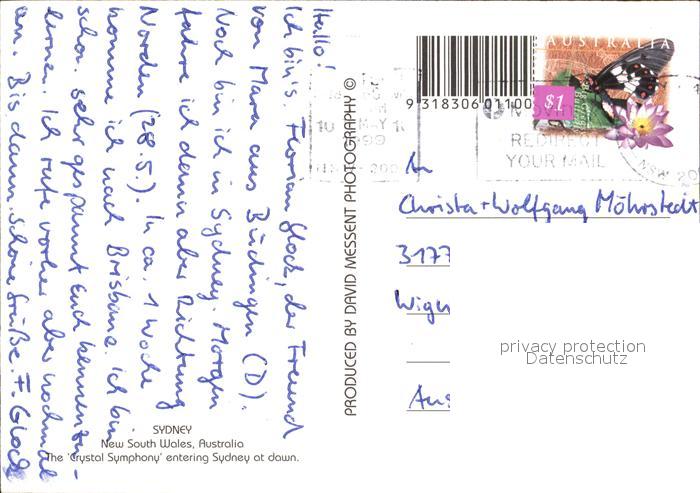 Hallo!
Ich bin's Florian Glock, der Freund
von Mara aus Büdingen (D).
Noch bin ich in Sydney. Morgen
fahre ich dann aber Richtung
Norden (28.5.). In ca. 1 Woche
komme ich nach Brisbane. Ich bin
schon sehr gespannt Euch kennenzu-
lernen. Ich rufe vorher aber nochmal
an. Bis dann. schöne Grüße. F. Glock
SYDNEY
New South Wales, Australia
The 'Crystal Symphony' entering Sydney at dawn.
PRODUCED BY DAVID MESSENT PHOTOGRAPHY ©
9 318306 01100
AUSTRALIA
$1
MOVING
REDIRECT
YOUR MAIL
NSW 20
An
Christa + Wolfgang Möhrstedt
3177
privacy protection
Datenschutz